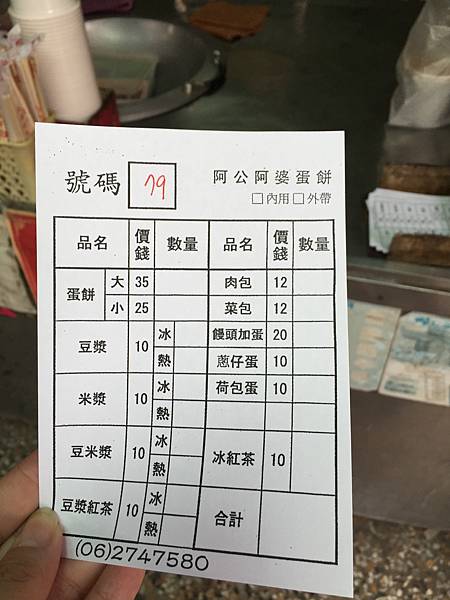 號碼 79 阿公阿婆蛋餅
□內用□外帶
品名 價錢 數量 品名 價錢 數量
蛋餅 大 35 肉包 12
小 25 菜包 12
豆漿 10 冰 饅頭加蛋 20
熱 蔥仔蛋 10
米漿 10 冰 荷包蛋 10
熱
豆米漿 10 冰 冰紅茶 10
熱
豆漿紅茶 10 冰 合計
熱
(06)2747580